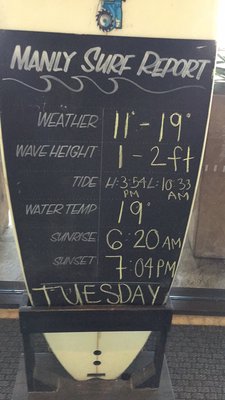 MANLY SURF REPORT
WEATHER 11° - 19°
WAVE HEIGHT 1 - 2ft
TIDE H: 3:54 PM L: 10:33 AM
WATER TEMP 19°
SUNRISE 6:20 AM
SUNSET 7:04 PM
TUESDAY